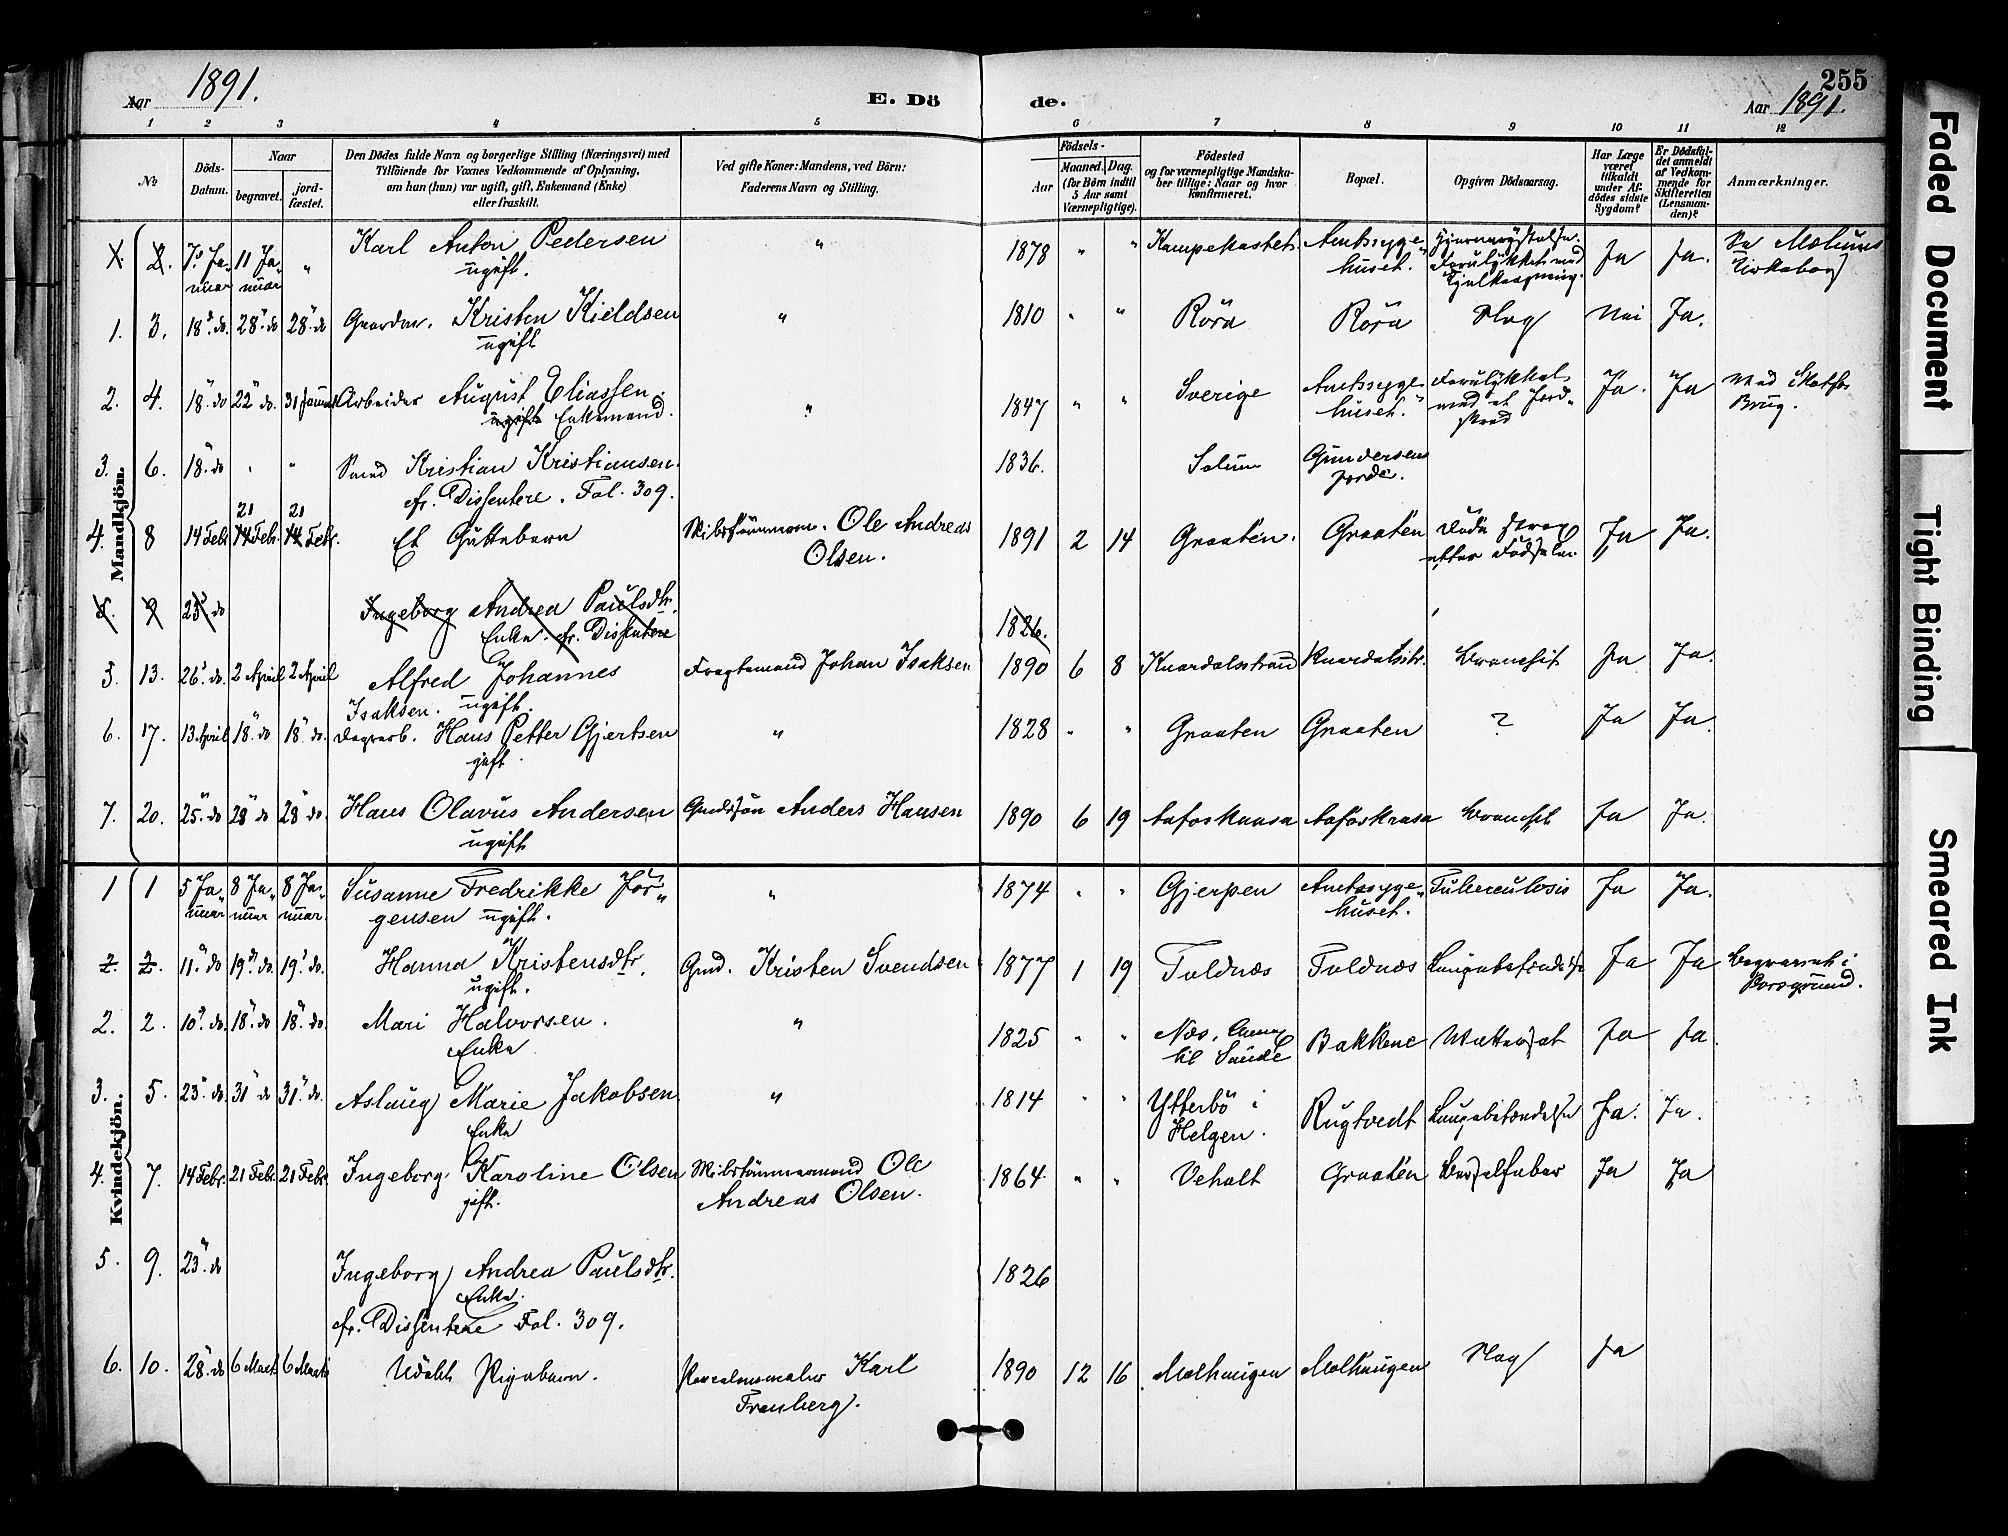 Aar 1891.
E. Dö
de.
255
Aar 1891.
1 2 3 4 5 6 7 8 9 10 11 12
№
Döds-
Datum.
Naar
begravet.
jord-
fæstet.
Den Dödes fulde Navn og borgerlige Stilling (Næringsvei) med
Tilföiende for Voxnes Vedkommende af Oplysning,
om han (hun) var ugift, gift, Enkemand (Enke)
eller fraskilt.
Ved gifte Koner: Mandens, ved Börn:
Faderens Navn og Stilling.
Födsels-
Aar
Maaned. Dag.
(for Börn indtil
5 Aar samt
Værnepligtige).
Födested
og for værnepligtige Mandska-
ber tillige: Naar og hvor
konfirmeret.
Bopæl.
Opgiven Dödsaarsag.
Har Læge
været
tilkaldt
under Af-
dödes sidste
Sygdom?
Er Dödsfal-
det anmeldt
af Vedkom-
mende for
Skifteretten
(Lensman-
den)?
Anmærkninger.
Mandkjön.
2. 7 Ja- 11 Ja- " Karl Anton Pedersen " 1878 " " Amtssyge- Ja Ja.
nuar nuar ugift. huset. Forulykket med
1. 3. 18 do. 28 do 28 do Kristen Kieldsen " 1810 " " Röra Röra Slag Nei Ja.
ugift
2. 4. 18 do 22 do. 31 Januar Arbeider August Eliassen. " 1847 " " Sverige Amtssyge- Forulykket Ja. Ja
ugift Enkemand. huset. med et Jord- Brug.
skred
3. 6. 18 do " " Smed Kristian Kristiansen. 1836. Solum Gundersens
cfr. Dissentere. Fol. 309. Jorde.
21 21
4. 8 14 Febr 14 Febr 14 Febr. Et Guttebarn Ole Andreas 1891 2 14 Graaten. Graaten Döde strax Ja Ja.
Olsen. efter Födselen
5. 9 23 do Ingeborg Andrea Paulsdtr. 1826.
Enke. cfr. Dissentere
5. 13. 26 do. 2 April 2 April Alfred Johannes Fragtemand Johan Isaksen 1890 6 8 Knardalsstrand Knardalsstr. Bronchit Ja Ja.
Isaksen. ugift.
6. 17. 13 April 18 do 18 do. Hans Petter Gjertsen " 1828 " " Graaten Graaten ? Ja Ja.
gift
7. 20. 25 do 28 do 28 do. Hans Olavus Andersen Anders Hansen 1890 6 19 Aafoskaasa Bronchit Ja Ja.
ugift
Kvindekjön.
1 1 5 Ja- 8 Ja- 8 Ja- Susanne Fredrikke Jör- " 1874 " " Gjerpen Amtssyge- Tuberculosis Ja Ja.
nuar nuar nuar. gensen ugift. huset.
2. 2. 11 do 19 do. 19 do. Hanna Kristensdtr. Gmd. Kristen Svendsen 1877 1 19 Toldnæs Toldnæs Lungebetændelse Ja Ja Begravet i
ugift. Porsgrund.
2. 2. 10 do. 18 do 18 do. Mari Halvorsen. " 1825 " " Næs, Annex Bakkene Vattersot Ja Ja.
Enke til Saude
3. 5. 23 do 31 do 31 do. Aslaug Marie Jakobsen " 1814 " " Ytterbö i Rugtvedt Lungebetændelse Ja. Ja.
Enke Helgen.
4. 7. 14 Febr. 21 Febr. 21 Febr. Ingeborg Karoline Olsen Ole 1864. " " Veholt Graaten Barselfeber Ja Ja
gift. Andreas Olsen.
5. 9. 23 do Ingeborg Andrea Paulsdtr. 1826
Enke.
cfr. Dissentere Fol. 309.
6. 10. 28 do 6 Marts 6 Marts Udöbt Pigebarn. Karl 1890 12 16 Mælhaugen Mælhaugen Slag Ja
Frauberg.
Faded Document
Tight Binding
Smeared Ink